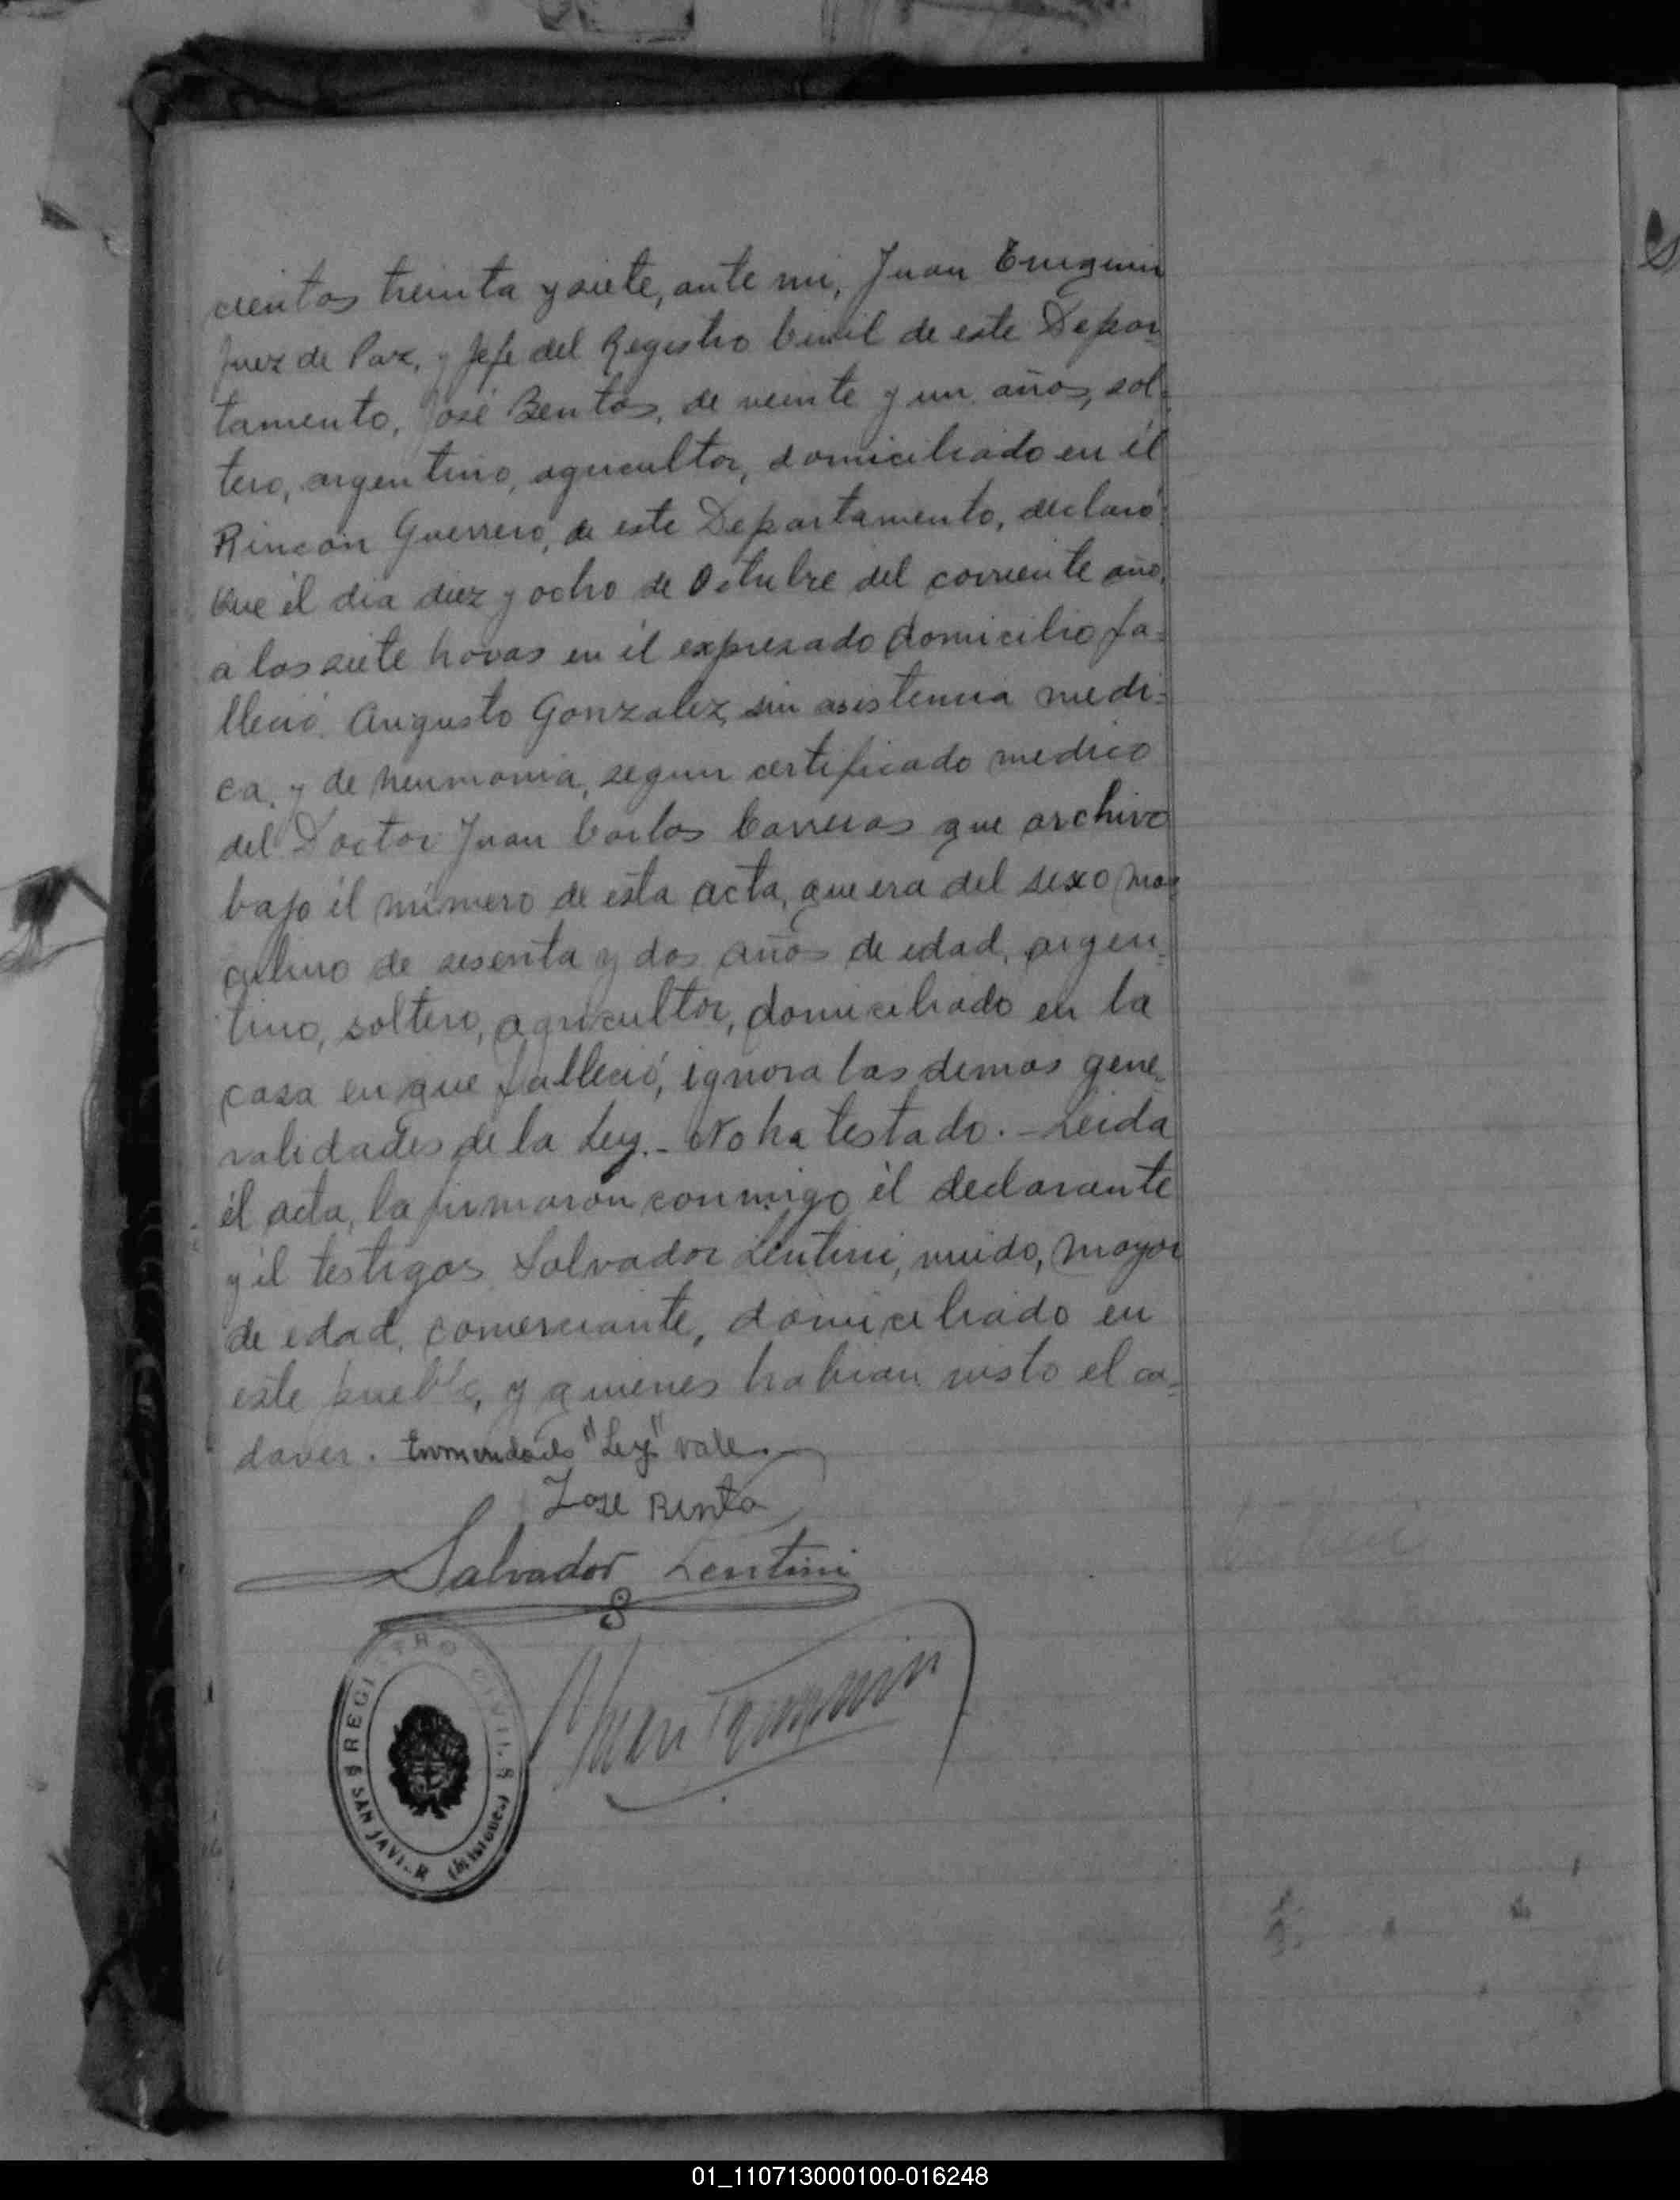 cientos treinta y siete, ante mi, Juan
Juez de Paz, y Jefe del Registro Civil de este Depar-
tamento, José Bentos, de veinte y un años, sol-
tero, argentino, agricultor, domiciliado en él
Rincon Guerrero, de este Departamento, declaró:
Que él dia diez y ocho de Octubre del corriente año,
a las siete horas en él expresado domicilio fa=
lleció Augusto Gonzalez, sin asistencia medi=
ca, y de neumonia, segun certificado medico
del Doctor Juan Carlos Carreras que archivo
bajo él número de esta acta, que era del sexo mas
culino de sesenta y dos años de edad, argen-
tino, soltero, agricultor, domiciliado en la
casa en que falleció, ignora las demas gene-
ralidades de la Ley.- No ha testado.- Leida
él acta, la firmaron conmigo él declarante
y él testigos Salvador Lentini, viudo, mayor
de edad, comerciante, domiciliado en
este pueblo, y quienes habian visto el ca-
daver. Enmendado "Ley" vale.-
Jose Bento
Salvador Lentini
Juan
REGISTRO CIVIL
SAN JAVIER (Misiones)
01_110713000100-016248